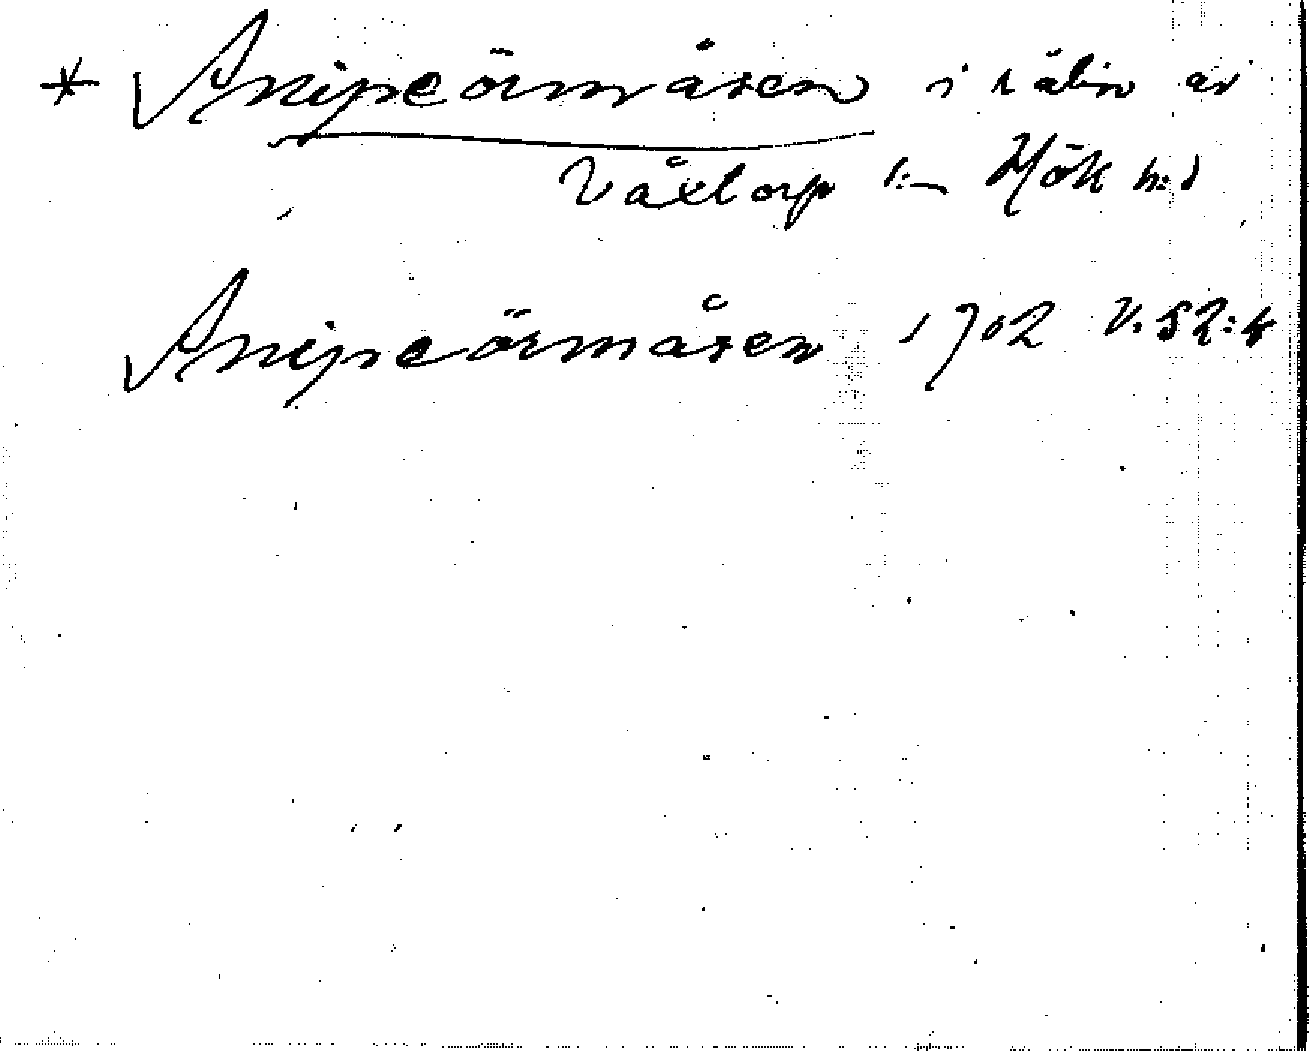 * Snipeörmåsen i sälin av
Våxtorp s:n Hök h:d
Snipeörmåsen 1702 V. 52:4